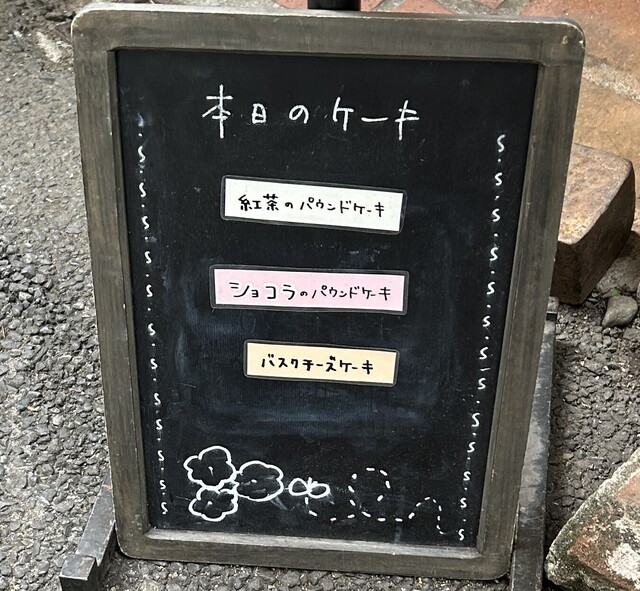 本日のケーキ
紅茶のパウンドケーキ
ショコラのパウンドケーキ
バスクチーズケーキ